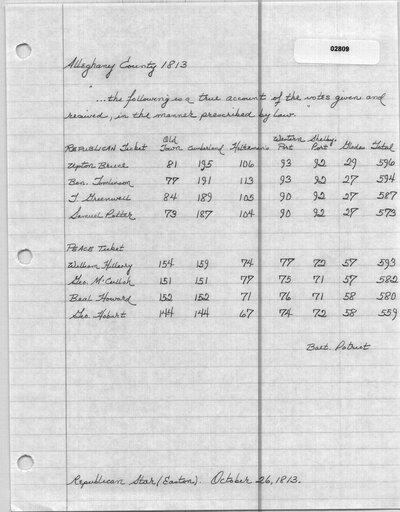 02809
Alleghany County 1813
"...the following is a true account of the votes given and
received, in the manner prescribed by law."
Old Western Shelby.
REPUBLICAN Ticket Town Cumberland Port Port Glades Total
Upton Bruce 81 195 106 93 92 29 596
Ben. Tomlinson 77 191 113 93 92 27 594
T Greenwell 84 189 105 90 92 27 587
Samuel Potter 73 187 104 90 92 27 573
PEACE Ticket
William Hilleary 154 159 74 77 72 57 593
Geo. McCulloh 151 151 77 75 71 57 582
Beal Howard 152 152 71 76 71 58 580
Geo. Hobart 144 144 67 74 72 58 559
Balt. Patriot
Republican Star (Easton). October 26, 1813.